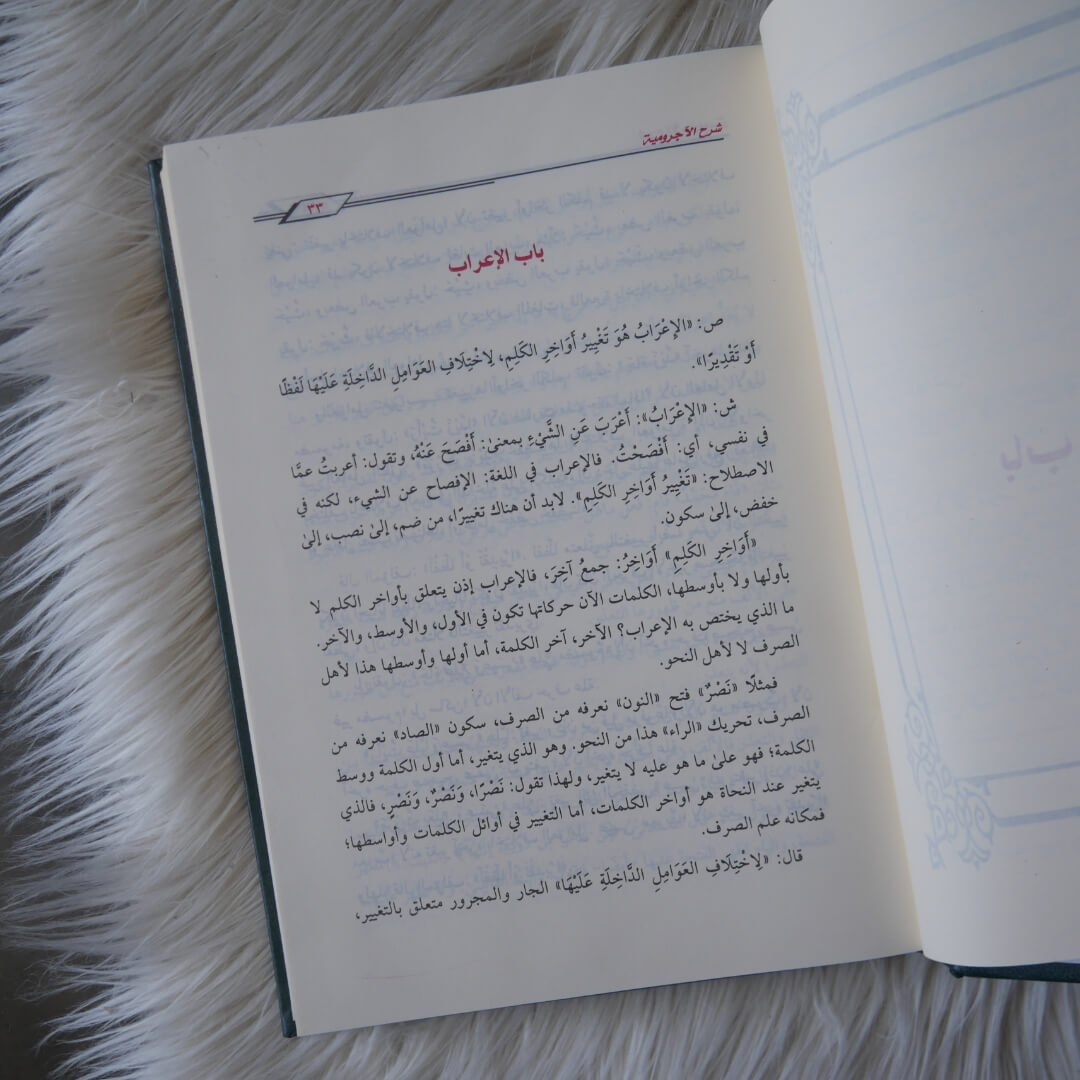 شرح الآجرومية
٣٣
باب الإعراب
ص: «الإِعْرَابُ هُوَ تَغْيِيرُ أَوَاخِرِ الكَلِمِ، لِاخْتِلَافِ العَوَامِلِ الدَّاخِلَةِ عَلَيْهَا لَفْظًا
أَوْ تَقْدِيرًا».
ش: «الإِعْرَابُ»: أَعْرَبَ عَنِ الشَّيْءِ بمعنىٰ: أَفْصَحَ عَنْهُ، وتقول: أعربتُ عمَّا
في نفسي، أي: أَفْصَحْتُ. فالإعراب في اللغة: الإفصاح عن الشيء، لكنه في
الاصطلاح: «تَغْيِيرُ أَوَاخِرِ الكَلِمِ». لابد أن هناك تغييرًا، من ضم، إلىٰ نصب، إلىٰ
خفض، إلىٰ سكون.
«أَوَاخِرِ الكَلِمِ» أَوَاخِرُ: جمعُ آخِرَ، فالإعراب إذن يتعلق بأواخر الكلم لا
بأولها ولا بأوسطها، الكلمات الآن حركاتها تكون في الأول، والأوسط، والآخر.
ما الذي يختص به الإعراب؟ الآخر، آخر الكلمة، أما أولها وأوسطها هذا لأهل
الصرف لا لأهل النحو.
فمثلًا «نَصْرٌ» فتح «النون» نعرفه من الصرف، سكون «الصاد» نعرفه من
الصرف، تحريك «الراء» هذا من النحو. وهو الذي يتغير، أما أول الكلمة ووسط
الكلمة؛ فهو علىٰ ما هو عليه لا يتغير، ولهذا تقول: نَصْرًا، وَنَصْرٌ، وَنَصْرٍ، فالذي
يتغير عند النحاة هو أواخر الكلمات، أما التغيير في أوائل الكلمات وأواسطها؛
فمكانه علم الصرف.
قال: «لِاخْتِلَافِ العَوَامِلِ الدَّاخِلَةِ عَلَيْهَا» الجار والمجرور متعلق بالتغيير،